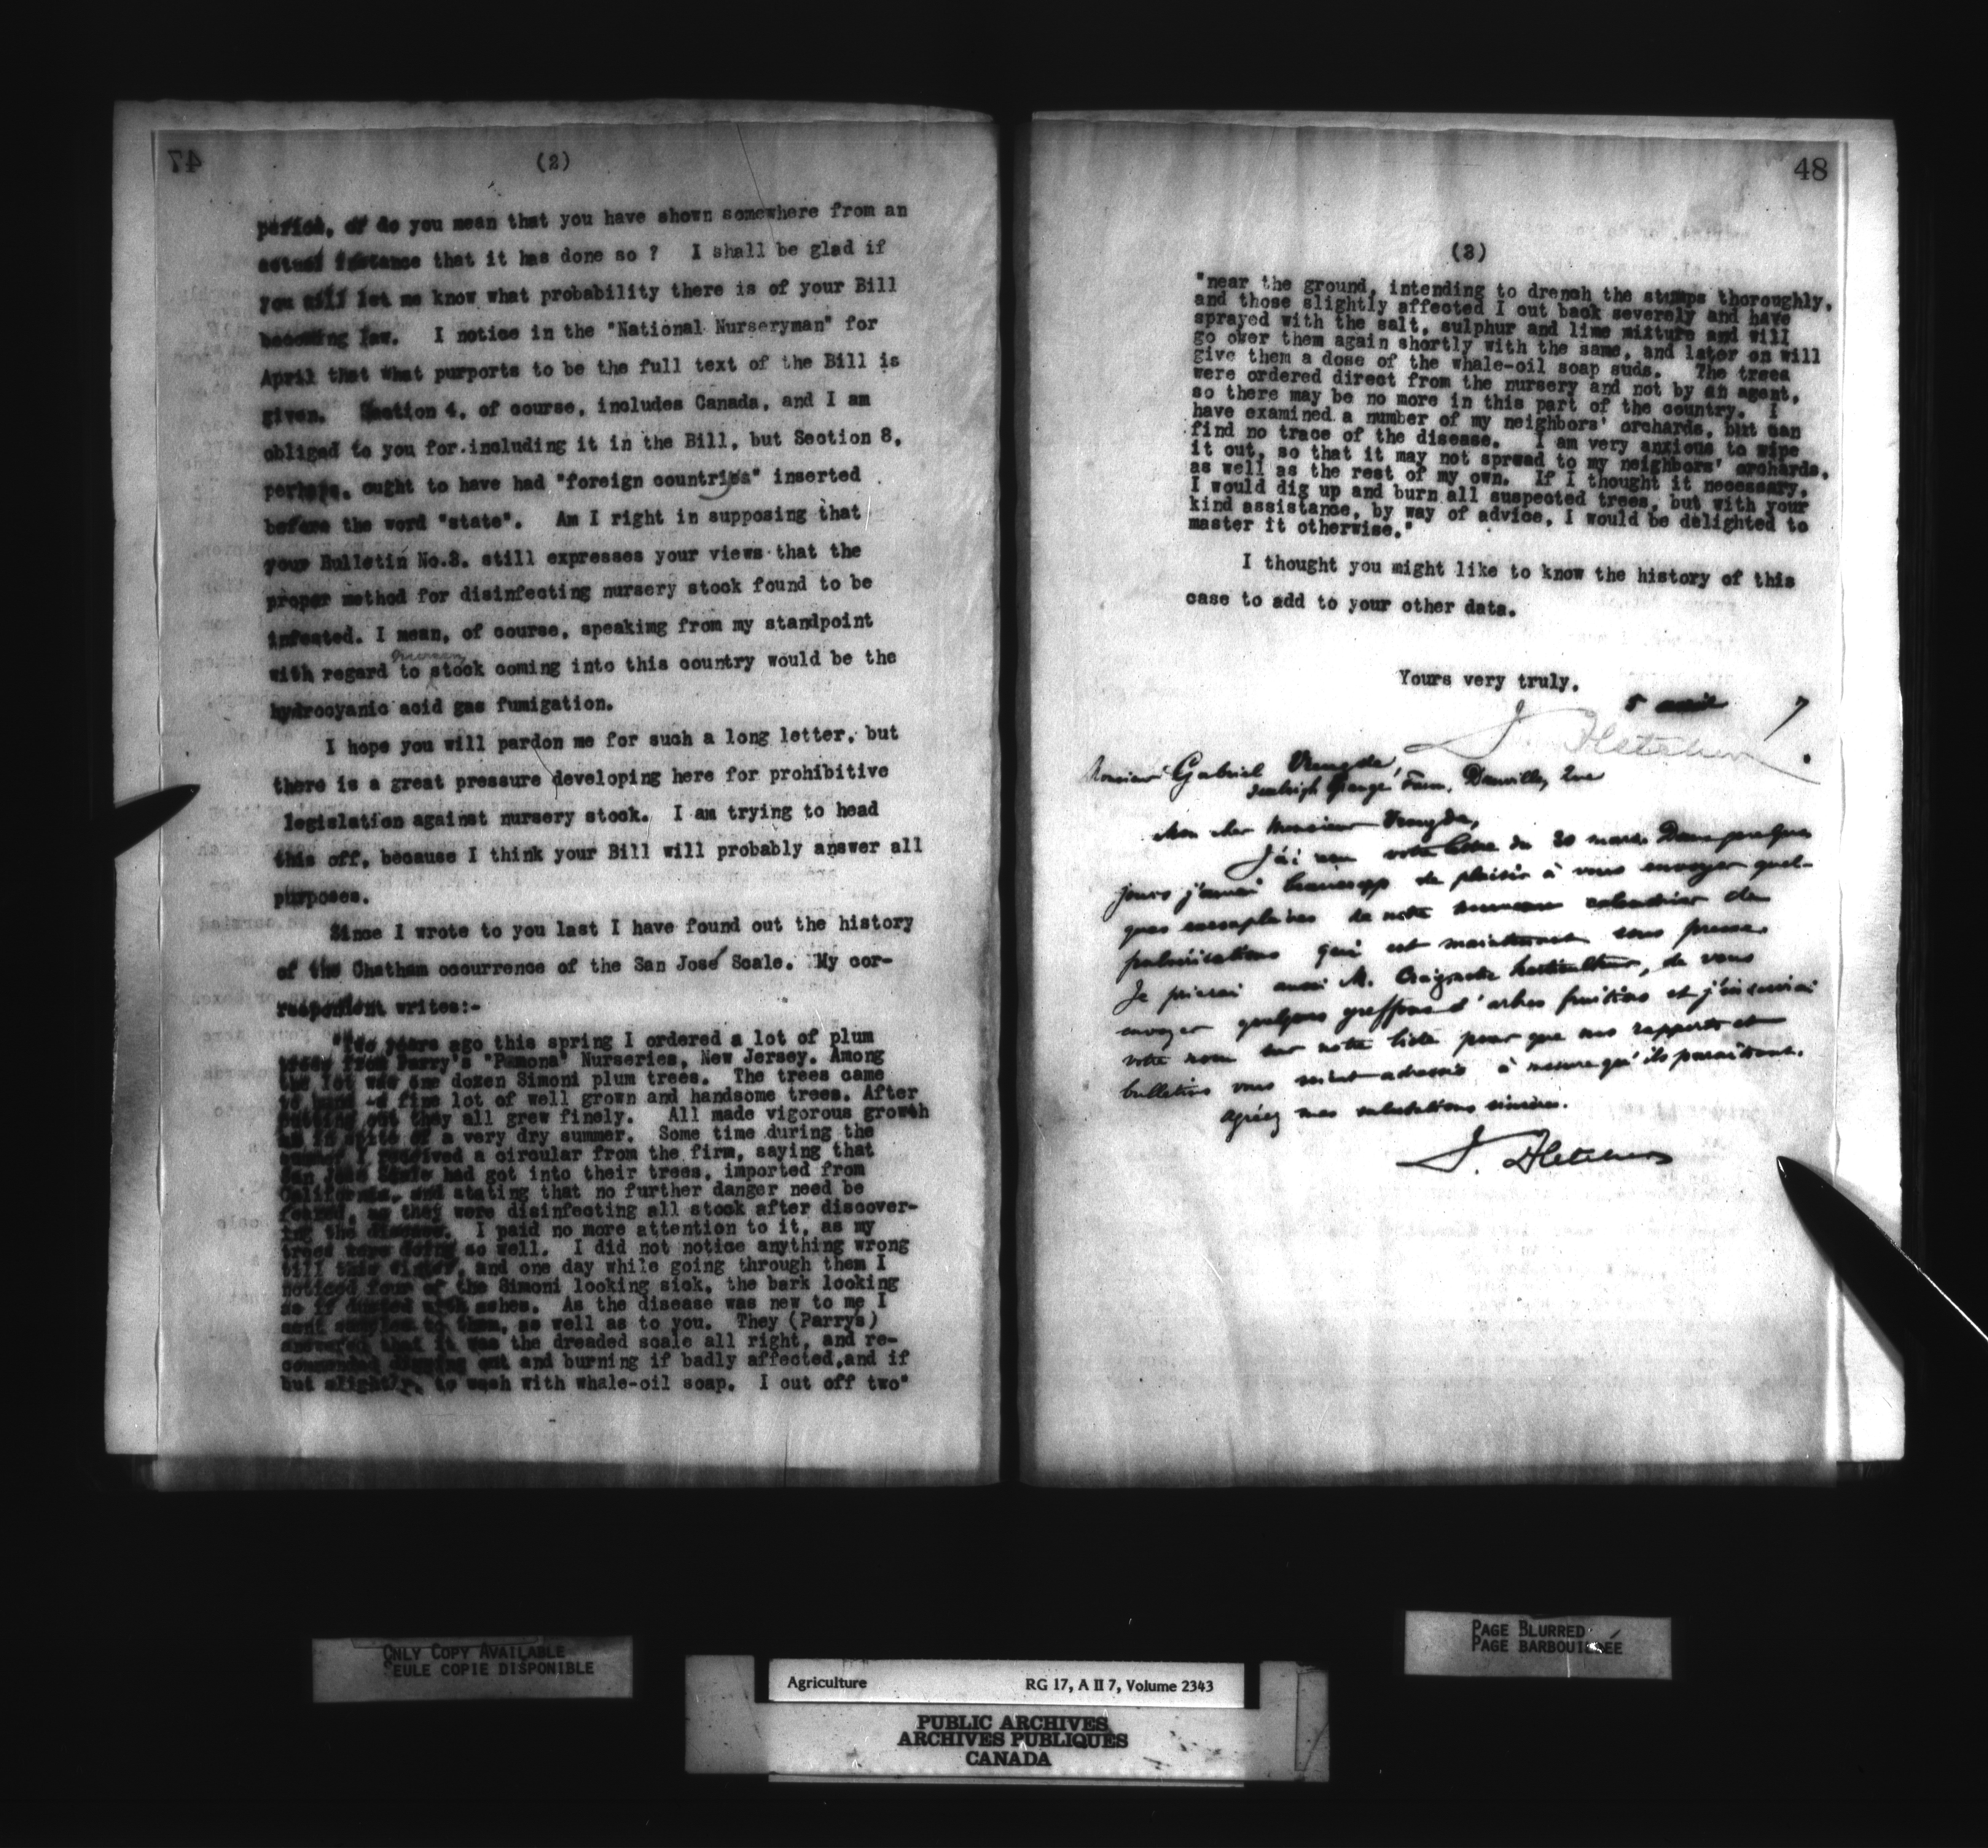 47
(2)
period, or do you mean that you have shown somewhere from an
actual instance that it has done so ? I shall be glad if
you will let me know what probability there is of your Bill
becoming law. I notice in the "National Nurseryman" for
April that what purports to be the full text of the Bill is
given. Section 4, of course, includes Canada, and I am
obliged to you for including it in the Bill, but Section 8,
perhaps, ought to have had "foreign countries" inserted
before the word "state". Am I right in supposing that
your Bulletin No.3. still expresses your views that the
proper method for disinfecting nursery stock found to be
infested. I mean, of course, speaking from my standpoint
nursery
with regard to stock coming into this country would be the
hydrocyanic acid gas fumigation.
I hope you will pardon me for such a long letter, but
there is a great pressure developing here for prohibitive
legislation against nursery stock. I am trying to head
this off, because I think your Bill will probably answer all
purposes.
Since I wrote to you last I have found out the history
of the Chatham occurrence of the San José Scale. My cor-
respondent writes:-
"Two years ago this spring I ordered a lot of plum
trees from Parry's "Pamona" Nurseries, New Jersey. Among
the lot was one dozen Simoni plum trees. The trees came
to hand a fine lot of well grown and handsome trees. After
putting out they all grew finely. All made vigorous growth
in spite of a very dry summer. Some time during the
summer I received a circular from the firm, saying that
San Jose Scale had got into their trees, imported from
California, and stating that no further danger need be
feared, as they were disinfecting all stock after discover-
ing the disease. I paid no more attention to it, as my
trees were doing so well. I did not notice anything wrong
till this winter, and one day while going through them I
noticed four of the Simoni looking sick, the bark looking
as if dusted with ashes. As the disease was new to me I
sent samples to them, as well as to you. They (Parrys)
answered that it was the dreaded scale all right, and re-
commended digging out and burning if badly affected,and if
but slightly, to wash with whale-oil soap. I cut off two"
48
(3)
"near the ground, intending to drench the stumps thoroughly,
and those slightly affected I cut back severely and have
sprayed with the salt, sulphur and lime mixture and will
go over them again shortly with the same, and later on will
give them a dose of the whale-oil soap suds. The trees
were ordered direct from the nursery and not by an agent,
so there may be no more in this part of the country. I
have examined a number of my neighbors' orchards, but can
find no trace of the disease. I am very anxious to wipe
it out, so that it may not spread to my neighbors' orchards,
as well as the rest of my own. If I thought it necessary,
I would dig up and burn all suspected trees, but with your
kind assistance, by way of advice, I would be delighted to
master it otherwise."
I thought you might like to know the history of this
case to add to your other data.
Yours very truly,
J. Fletcher
5 avril 7
Monsieur Gabriel
Grange Farm, Danville, Que
Mon cher Monsieur
J'ai reçu votre lettre du 30 mars. Dans quelques
jours j'aurai beaucoup de plaisir à vous envoyer quel-
ques exemplaires de notre nouveau calendrier de
pulvérisations qui est maintenant sous presse.
Je prierai aussi M. Craig notre horticulteur, de vous
envoyer quelques greffons d'arbres fruitiers et j'inscrirai
votre nom sur notre liste pour que nos rapports et
bulletins vous soient adressés à mesure qu'ils paraîtront.
Agréez mes salutations sincères.
J. Fletcher
ONLY COPY AVAILABLE
SEULE COPIE DISPONIBLE
PAGE BLURRED
PAGE BARBOUILLÉE
Agriculture RG 17, A II 7, Volume 2343
PUBLIC ARCHIVES
ARCHIVES PUBLIQUES
CANADA